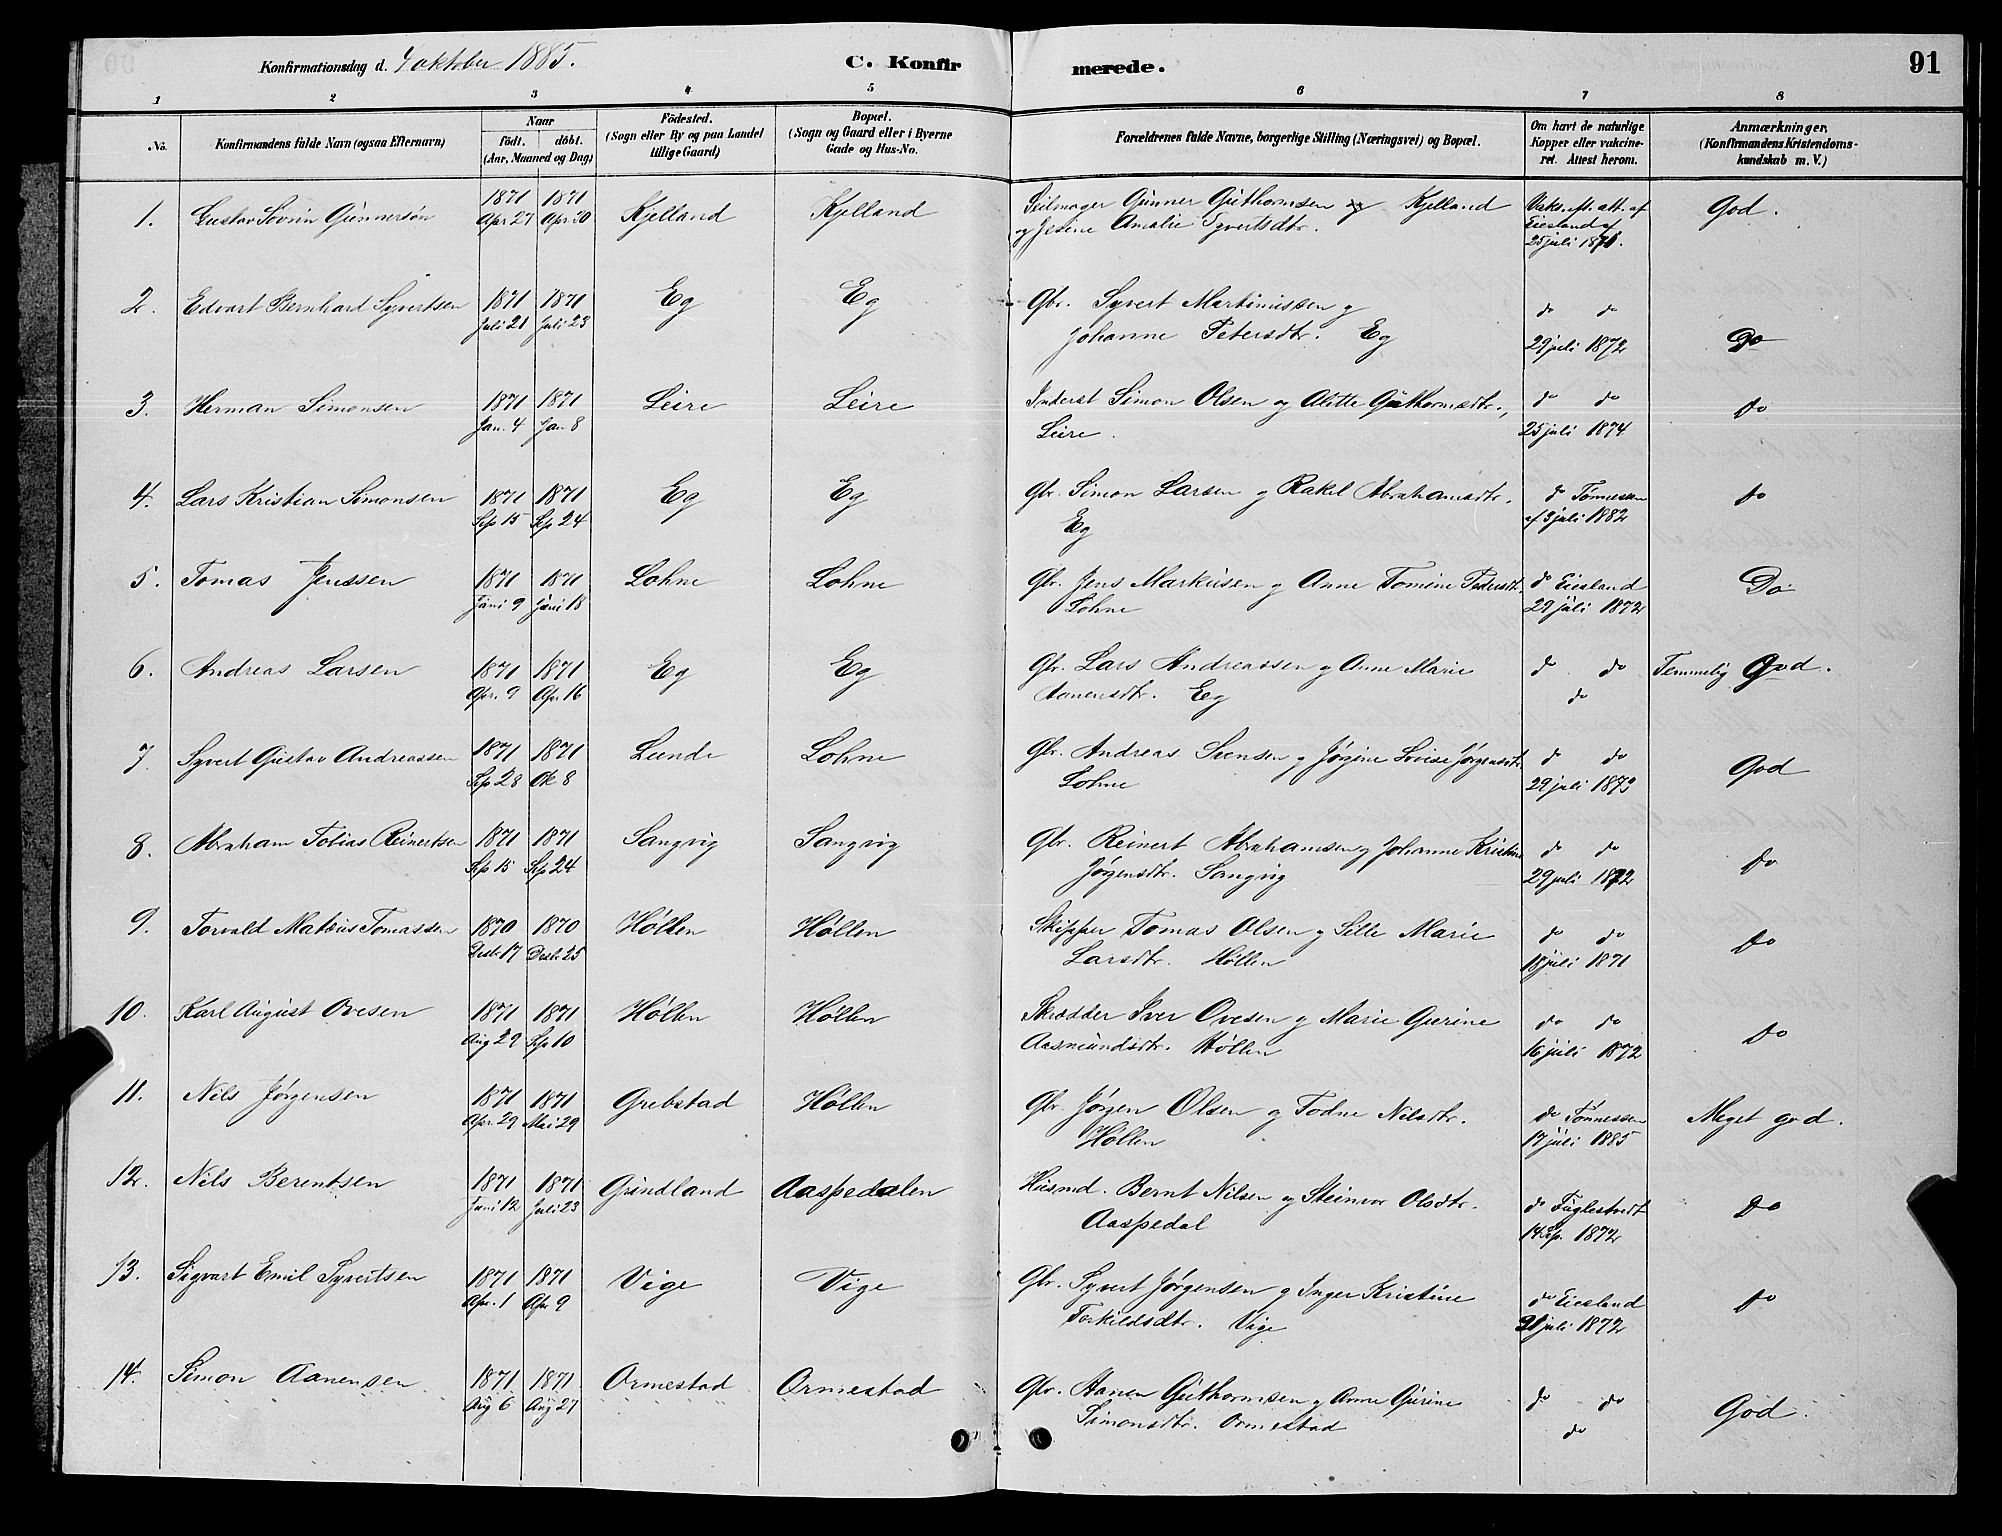 Konfirmationsdag d. 4 oktober 1885.
C. Konfirmerede.
91
1 2 3 4 5 6 7 8
No.
Konfirmandens fulde Navn (ogsaa Efternavn)
Naar
födt. döbt.
(Aar, Maaned og Dag)
Födested.
(Sogn eller By og paa Landet
tillige Gaard)
Bopæl.
(Sogn og Gaard eller i Byerne
Gade og Hus-No.
Forældrenes fulde Navne, borgerlige Stilling (Næringsvei) og Bopæl.
Om havt de naturlige
Kopper eller vakcine-
ret. Attest herom.
Anmærkninger,
(Konfirmandens Kristendoms-
kundskab m. V.)
1. Gustav Sovrin Gunnersön 1871 1871 Kjelland Kjelland Seilmager Gunner Guthormsen og Kjelland Vaks. eft. att. af God.
Apr 27 Apr. 30 og Jesine Amalie Syvertsdtr. Eieslandaf
25 juli 1871.
2. Edvart Bernhard Syvertsen 1871 1871 Eg Eg Gbr. Syvert Martinussen og do do
Juli 21 Juli 23 Johanne Petersdtr. Eg 29 juli 1872 Do
3. Herman Simonsen 1871 1871 Leire Leire Inderst Simon Olsen og Alette Guthormsdtr., do do do
Jan. 4 Jan 8 Leire. 25 juli 1874
4. Lars Kristian Simonsen 1871 1871 Eg Eg Gbr. Simon Larsen og Rakel Abrahamsdtr. do Tønnessen do
Sep 15 Sep 24 Eg af 3 juli 1882
5. Tomas Jenssen 1871 1871 Lohne Lohne Gbr. Jens Markusen og Anne Tomine Pedersdt. do Eiesland Do
Juni 9 Juni 18 Lohne 29 juli 1872
6. Andreas Larsen 1871 1871 Eg Eg Gbr. Lars Andreassen og Anne Marie do do Temmelig god.
Apr. 9 Apr 16 Aanensdtr. Eg do
7. Syvert Gustav Andreassen 1871 1871 Lunde Lohne Gbr. Andreas Svensen og Jørgine Lovise Jørgensdt. do do God
Sep 28 Ok 8 Lohne 29 juli 1873
8. Abraham Tobias Reinertsen 1871 1871 Sangvig Sangvig Gbr. Reinert Abrahamsen og Johanne Kristine do do do
Sep 15 Sep 24 Jørgensdtr. Sangvig 29 juli 1872
9. Torvald Mateus Tomassen 1870 1870 Høllen Høllen Skipper Tomas Olsen og Sille Marie do do do
Desb. 17 Desb. 25 Larsdtr. Høllen 18 juli 1871
10. Karl August Ovesen 1871 1871 Høllen Høllen Skrædder Iver Ovesen og Marie Gurine do do do
Aug 29 Sep 10 Aasmundsdtr. Høllen 16 juli 1872
11. Nils Jørgensen 1871 1871 Grebstad Høllen Gbr. Jørgen Olsen og Todne Nilsdtr. do Tønnessen Meget god.
Apr. 29 Mai 29 Høllen 17 juli 1885
12. Nils Berentsen 1871 1871 Grindland Aaspedalen Husmd. Bernt Nilsen og Steinvor Olsdtr. do Fuglestvedt Do
Juni 12 Juli 23 Aaspedal 14 Sp. 1872
13. Sigvart Emil Syvertsen 1871 1871 Vige Vige Gbr. Syvert Jørgensen og Inger Kristine do Eiesland do
Apr. 1 Apr 9 Torkildsdtr. Vige 31 juli 1872
14. Simon Aanensen 1871 1871 Ormestad Ormestad Gbr. Aanen Guthormsen og Anne Gurine do do God.
Aug 6 Aug 27 Simonsdtr. Ormestad do